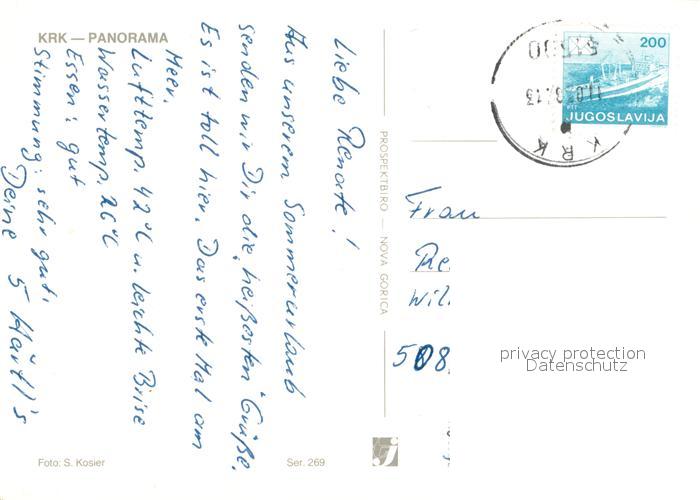 KRK — PANORAMA
Liebe Renate!
Aus unserem Sommerurlaub
senden wir Dir die „heißesten" Grüße.
Es ist toll hier. Das erste Mal am
Meer.
Lufttemp. 42°C u. leichte Brise
Wassertemp. 26°C
Essen: gut
Stimmung: sehr gut.
Deine 5 Härtl's
Foto: S. Kosier
Ser. 269
PROSPEKTBIRO — NOVA GORICA
200
PTT
JUGOSLAVIJA
51500
KRK
Frau
Re
Wil
508
privacy protection
Datenschutz